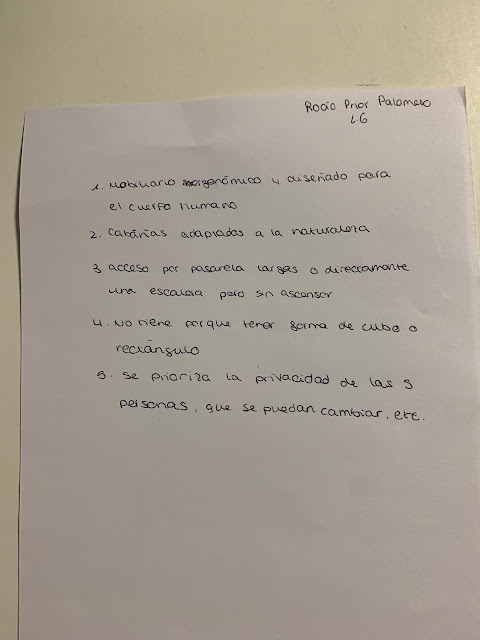 Rocio Prior Palomero
L6
1. Mobiliario ergonómico y diseñado para
el cuerpo humano
2. Cabañas adaptadas a la naturaleza
3 acceso por pasarela largas o directamente
una escalera pero sin ascensor
4. No tiene porque tener forma de cubo o
rectángulo
5. se prioriza la privacidad de las 5
personas, que se puedan cambiar, etc.